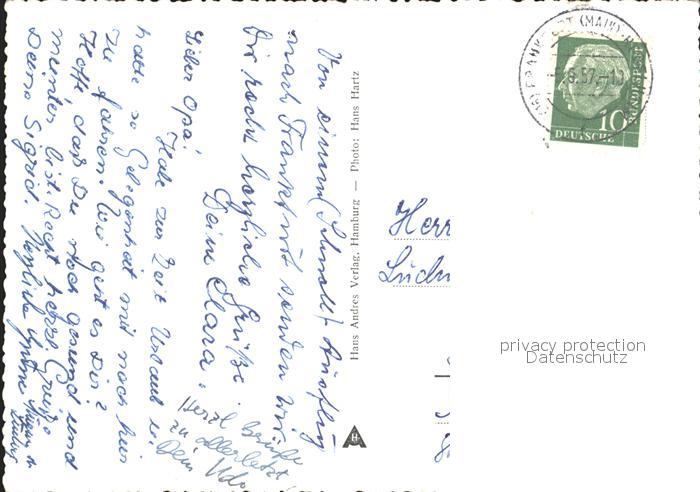 Von einem (Schnell) Ausflug
nach Frankfurt senden wir
Dir recht herzliche Grüße.
Deine Clara.
Lieber Opa!
Habe zur Zeit Urlaub u.
hatte so Gelegenheit mit nach hier
zu fahren. Wie geht es Dir?
Hoffe, daß Du noch gesund und
munter bist. Recht herzl. Grüße
Deine Sigrid.
Herzl. Grüße
zu allerletzt
Dein Udo
Hans Andres Verlag, Hamburg — Photo: Hans Hartz
H A
FRANKFURT (MAIN)
57.-1
10
DEUTSCHE
BUNDESPOST
Herr
privacy protection
Datenschutz